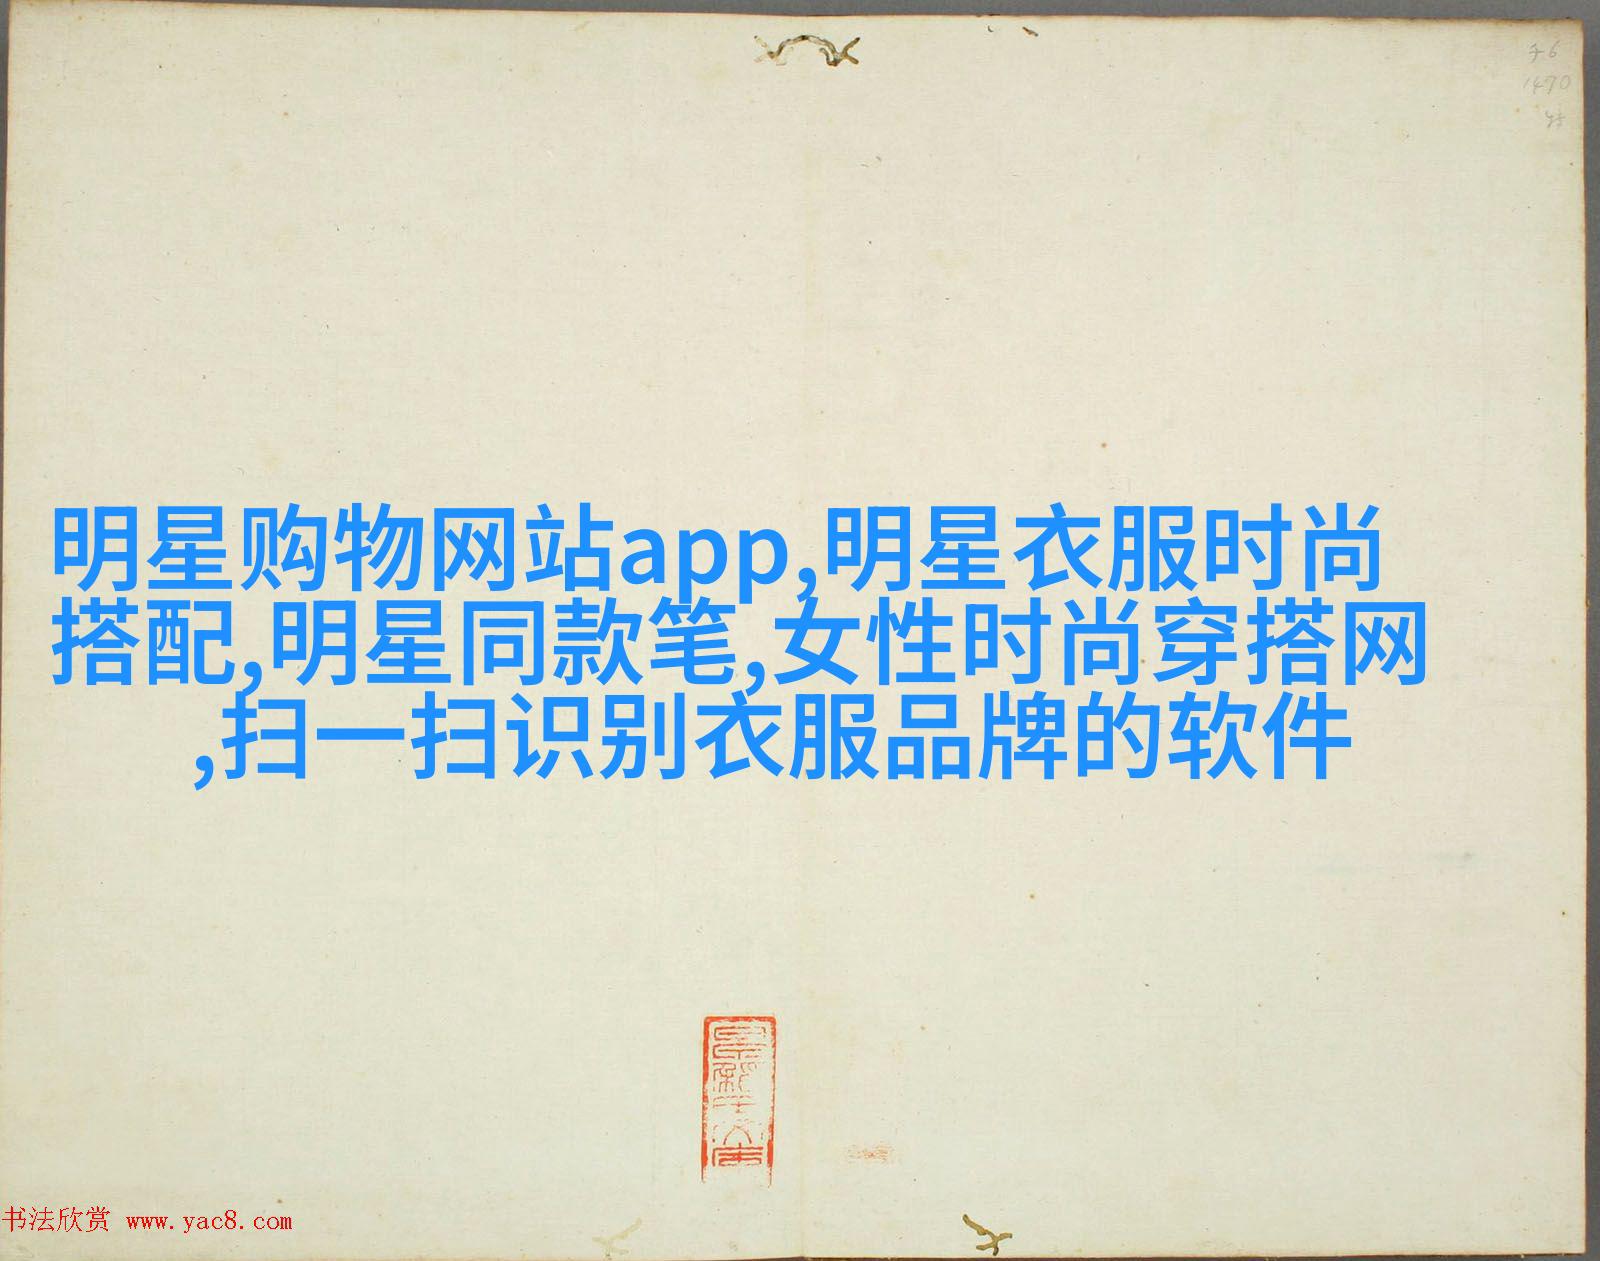 1470
明星购物网站app,明星衣服时尚
搭配,明星同款笔,女性时尚穿搭网
,扫一扫识别衣服品牌的软件
书法欣赏 www.yac8.com